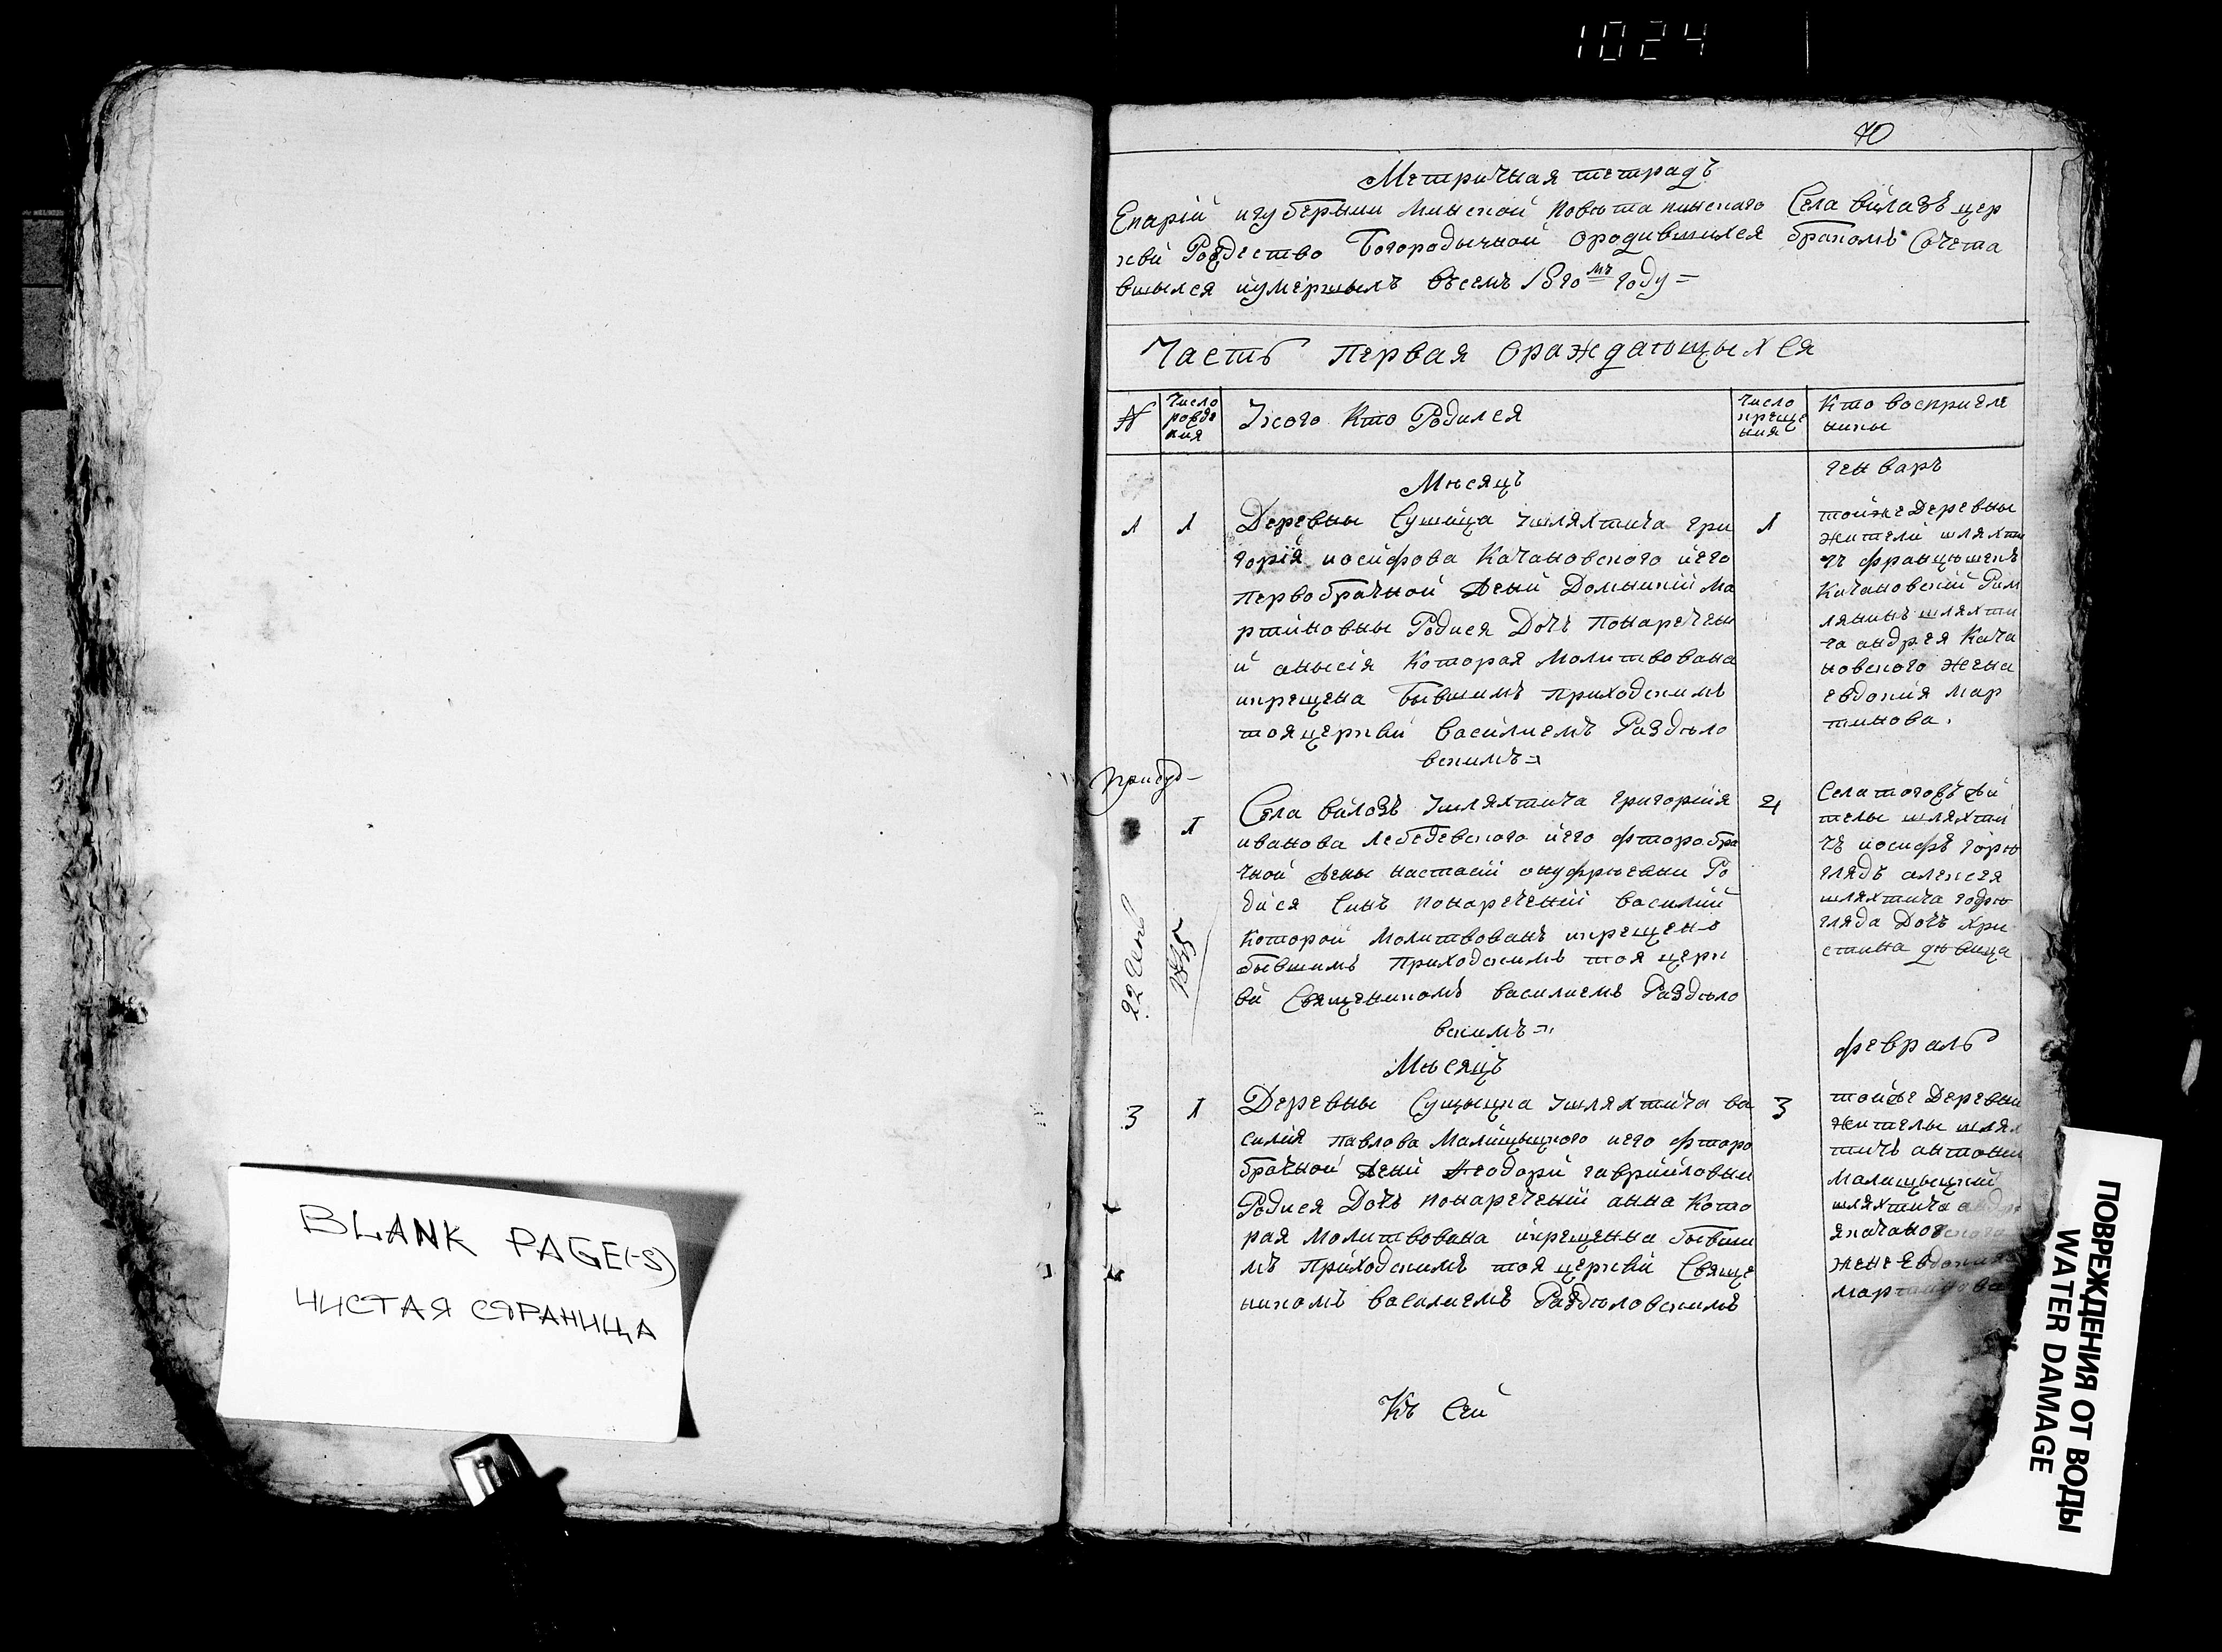 1024
70
Метричная тетрадъ
Епархій игубернии минской Повѣта пинского Села вилазъ цер
квй Рождество Богородычной ородившихся бракомъ Сочета
вшыхся иумершыхъ въсемъ 1810мъ году =
Часть первая ораждающыхся
N
Число рожде ния
Укого Кто Родился
Число креще ния
Кто восприем ники
Мѣсяцъ
генваръ
1
1
Деревны Сушица Ушляхтича гри
горія иосифова Качановского иего
первобрачной жены Домыникіи Ма
ртиновны Родися Дочъ Понаречен
й анысія Которая Молитвована
икрещена бывшимъ приходскимъ
тояцерквй Василиемъ Раздѣло
вскимъ =
1
тойже Деревны
жители шляхти
чъ францышекъ
Качановский Рим
лянинъ шляхти
ча андрея Кача
новского жена
евдокия мар
тинова.
1
Села вилазъ Ушляхтича григорийя
иванова лебедевского иего фторобра
чной жены настасіи онуфрыевни Ро
дися Синъ понаречений василий
Которой Молитвованъ икрещенъ
бывшимъ Приходскимъ тоя церк
вй Священикомъ василиемъ Раздѣло
вскимъ =
4
Села тогожъ жи
телы шляхти
чъ иосифъ
алексея
шляхтича
Дочъ хри
стина дѣвица
22
Мѣсяцъ
февраль
3
1
Деревны Сущыцка Ушляхтича ва
силия павлова Малищыцкого иего фторо
брачной жени Феодори гаврииловни
Родися Дочъ понаречений анна Кото
рая Молитвована икрещенна бывши
мъ Приходскимъ тоя церквй Свяще
никомъ василиемъ Раздѣловскимъ
3
тойже Деревни
жителы шлях
тичъ антоний
Малищыцкий
шляхтича андре
якачановского
жена Евдокия
мартинова
Къ Сей
BLANK PAGE(-S)
ЧИСТАЯ СТРАНИЦА
ПОВРЕЖДЕНИЯ ОТ ВОДЫ
WATER DAMAGE